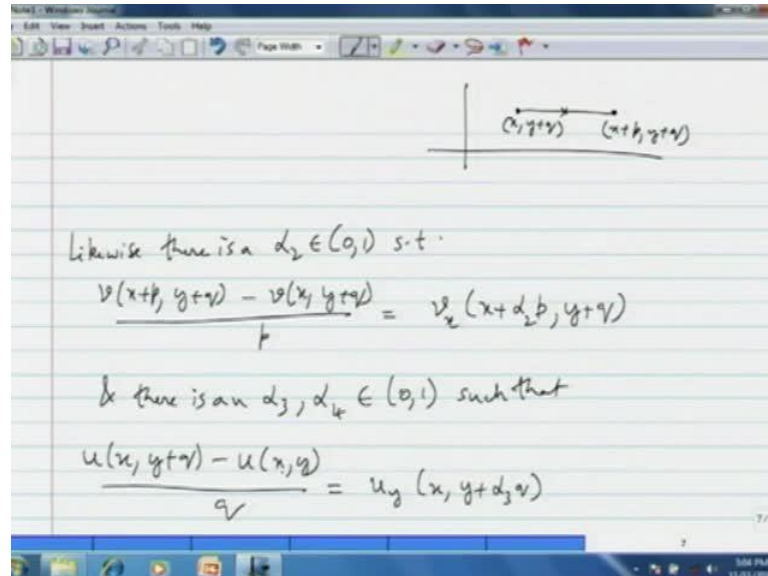 Note1 - Windows Journal
Edit View Insert Actions Tools Help
Page Width
(x, y+q) (x+p, y+q)
Likewise there is a α₂ ∈ (0,1) s.t.
v(x+p, y+q) - v(x, y+q)
p
= vₓ (x+α₂p, y+q)
& there is an α₃, α₄ ∈ (0,1) such that
u(x, y+q) - u(x,y)
q
= u_y (x, y+α₃q)
7
5:04 PM